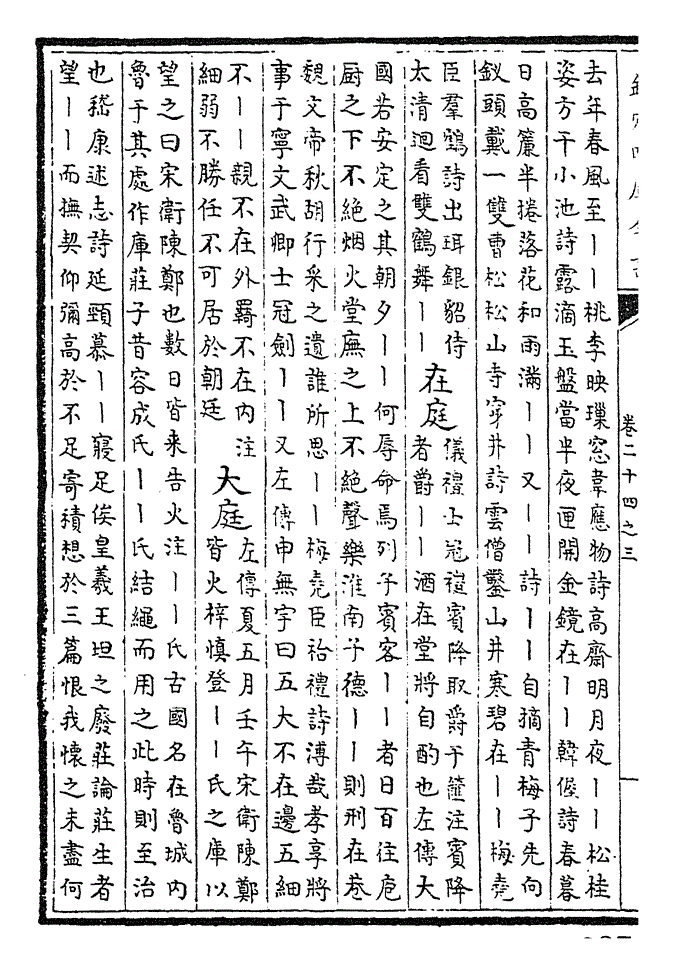 卷二十四之三
去年春風至丨丨桃李映璅窓韋應物詩高齋明月夜丨丨松桂
姿方干小池詩露滴玉盤當半夜匣開金鏡在丨丨韓偓詩春暮
日高簾半捲落花和雨滿丨丨又丨丨詩丨丨自摘青梅子先向
釵頭戴一雙曹松松山寺穿井詩雲僧鑿山井寒碧在丨丨梅堯
臣羣鶴詩出珥銀貂侍
太清迴看雙鶴舞丨丨
在庭
儀禮士冠禮賓降取爵于篚注賓降
者爵丨丨酒在堂將自酌也左傳大
國若安定之其朝夕丨丨何辱命焉列子賓客丨丨者日百往庖
厨之下不絕烟火堂廡之上不絕聲樂淮南子德丨丨則刑在巷
魏文帝秋胡行采之遺誰所思丨丨梅堯臣祫禮詩溥哉孝享將
事于寧文武卿士冠劍丨丨又左傳申無宇曰五大不在邊五細
不丨丨親不在外羈不在内注
細弱不勝任不可居於朝廷
大庭
左傳夏五月壬午宋衛陳鄭
皆火梓慎登丨丨氏之庫以
望之曰宋衛陳鄭也數日皆来告火注丨丨氏古國名在魯城内
魯于其處作庫莊子昔容成氏丨丨氏結繩而用之此時則至治
也嵇康述志詩延頸慕丨丨寢足俟皇羲王坦之廢莊論莊生者
望丨丨而撫契仰彌高於不足寄積想於三篇恨我懷之未盡何